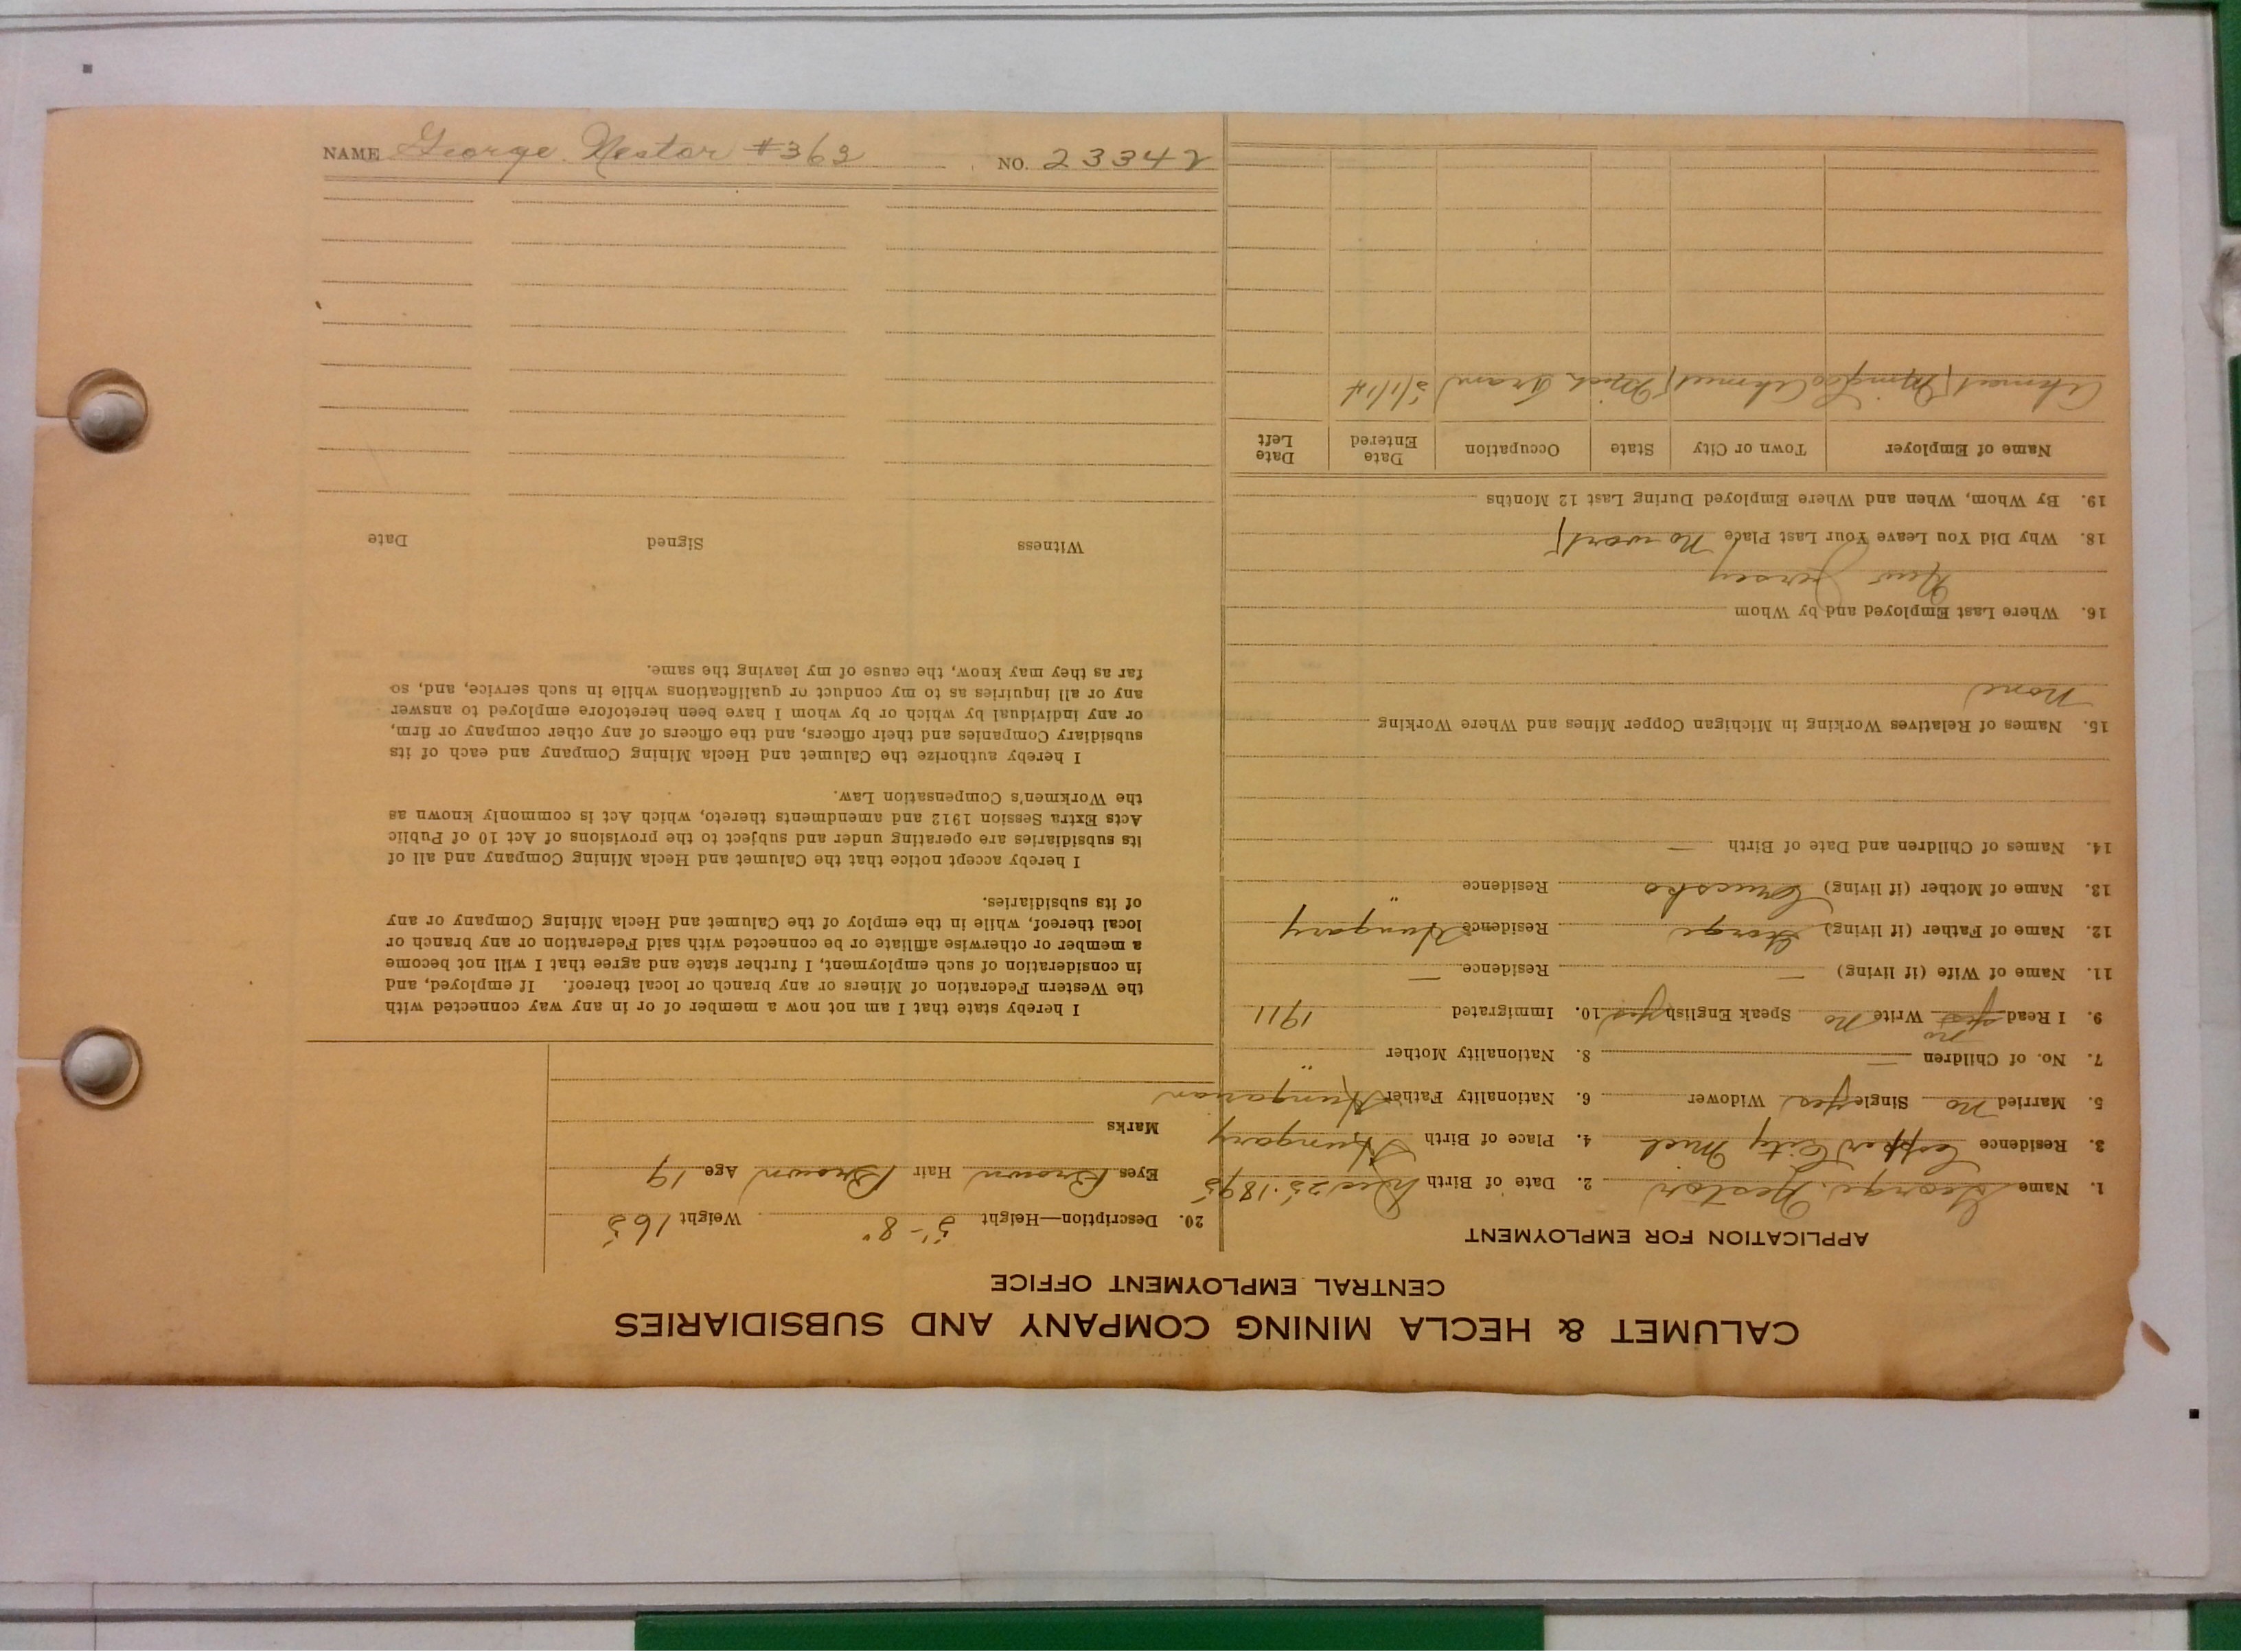 CALUMET & HECLA MINING COMPANY AND SUBSIDIARIES
CENTRAL EMPLOYMENT OFFICE
APPLICATION FOR EMPLOYMENT
1. Name George Nestor 2. Date of Birth Dec 25. 1895
3. Residence Copper City Mich 4. Place of Birth Hungary
5. Married no Single yes Widower 6. Nationality Father Hungarian
7. No. of Children — 8. Nationality Mother "
no
9. I Read yes Write no Speak English yes 10. Immigrated 1911
11. Name of Wife (if living) — Residence —
12. Name of Father (if living) George Residence Hungary
13. Name of Mother (if living) Residence "
14. Names of Children and Date of Birth —
15. Names of Relatives Working in Michigan Copper Mines and Where Working
none
16. Where Last Employed and by Whom
New Jersey
18. Why Did You Leave Your Last Place no work
19. By Whom, When and Where Employed During Last 12 Months
Name of Employer Town or City State Occupation Date Entered Date Left
Ahmeek Mining Co Ahmeek Mich Tram 5/1/14
20. Description—Height 5'-8" Weight 165
Eyes Brown Hair Brown Age 19
Marks
I hereby state that I am not now a member of or in any way connected with
the Western Federation of Miners or any branch or local thereof. If employed, and
in consideration of such employment, I further state and agree that I will not become
a member or otherwise affiliate or be connected with said Federation or any branch or
local thereof, while in the employ of the Calumet and Hecla Mining Company or any
of its subsidiaries.
I hereby accept notice that the Calumet and Hecla Mining Company and all of
its subsidiaries are operating under and subject to the provisions of Act 10 of Public
Acts Extra Session 1912 and amendments thereto, which Act is commonly known as
the Workmen's Compensation Law.
I hereby authorize the Calumet and Hecla Mining Company and each of its
subsidiary Companies and their officers, and the officers of any other company or firm,
or any individual by which or by whom I have been heretofore employed to answer
any or all inquiries as to my conduct or qualifications while in such service, and, so
far as they may know, the cause of my leaving the same.
Witness Signed Date
NAME George Nestor #363 NO. 23342